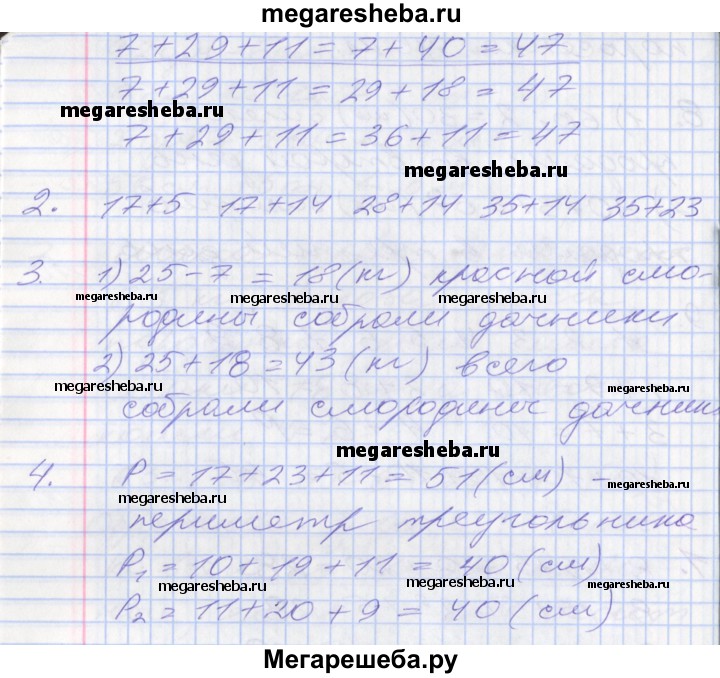 megaresheba.ru
7+29+11=7+40=47
7+29+11=29+18=47
megaresheba.ru
7+29+11=36+11=47
megaresheba.ru
2. 17+5 17+14 28+14 35+14 35+23
megaresheba.ru megaresheba.ru
3. 1) 25-7=18(кг) красной смо-
megaresheba.ru megaresheba.ru megaresheba.ru
родины собрали дачники
2) 25+18=43(кг) всего
megaresheba.ru megaresheba.ru
собрали смородины дачник
megaresheba.ru
4. P=17+23+11=51(см) -
megaresheba.ru megaresheba.ru
периметр треугольника
P₁=10+19+11=40(см)
megaresheba.ru megaresheba.ru megaresheba.ru
P₂=11+20+9=40(см)
Мегарешеба.ру